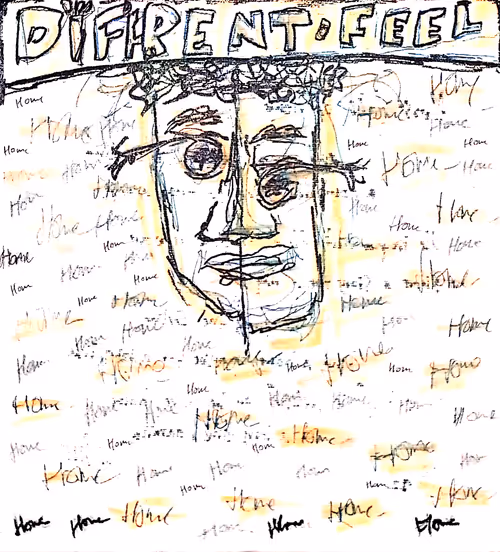 DIFFRENT·FEEL
Home
Home Home Home Home
Home Home Home
Home Home Home – Home
Home
Home Home Home
Home Home Home
Home Home
Home Home
Home Home Home
Home
Home Home Home
Home Home Home
Home Home
Home Home Home Home
Home
Home Home Home Home Home Home
Home Home
Home Home Home Home Home
Home Home Home Home Home
Home Home
Home Home
Home Home Home Home Home Home Home